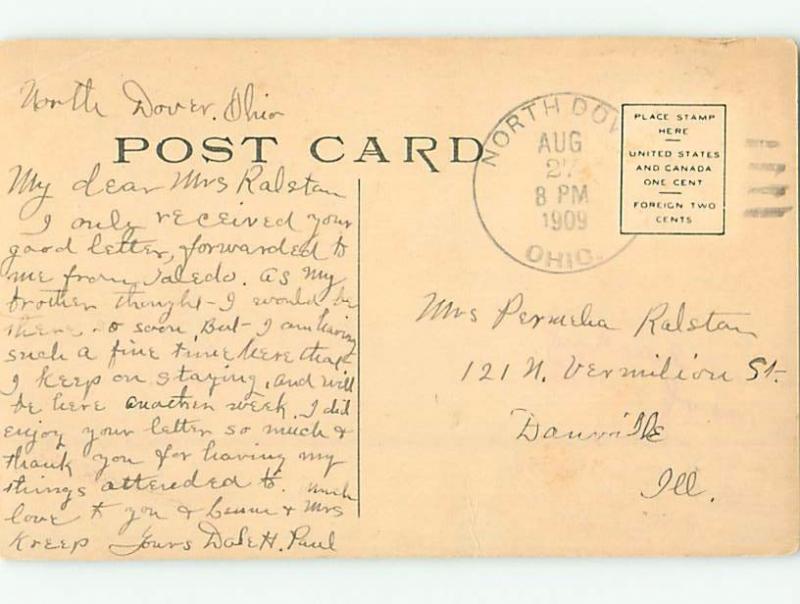 North Dover, Ohio
POST CARD
My dear Mrs Ralstan
I only received your
good letter, forwarded to
me from Toledo. as my
brother thought I would be
there so soon, But I am having
such a fine time here that
I keep on staying, and will
be here another week. I did
enjoy your letter so much &
thank you for having my
things attended to. much
love to you & & Mrs
Kreep Yours H. Paul
NORTH DOV
AUG
27
8 PM
1909
OHIO.
PLACE STAMP
HERE
UNITED STATES
AND CANADA
ONE CENT
FOREIGN TWO
CENTS
Mrs Permelia Ralstan
121 N. Vermilion St.
Danville
Ill.